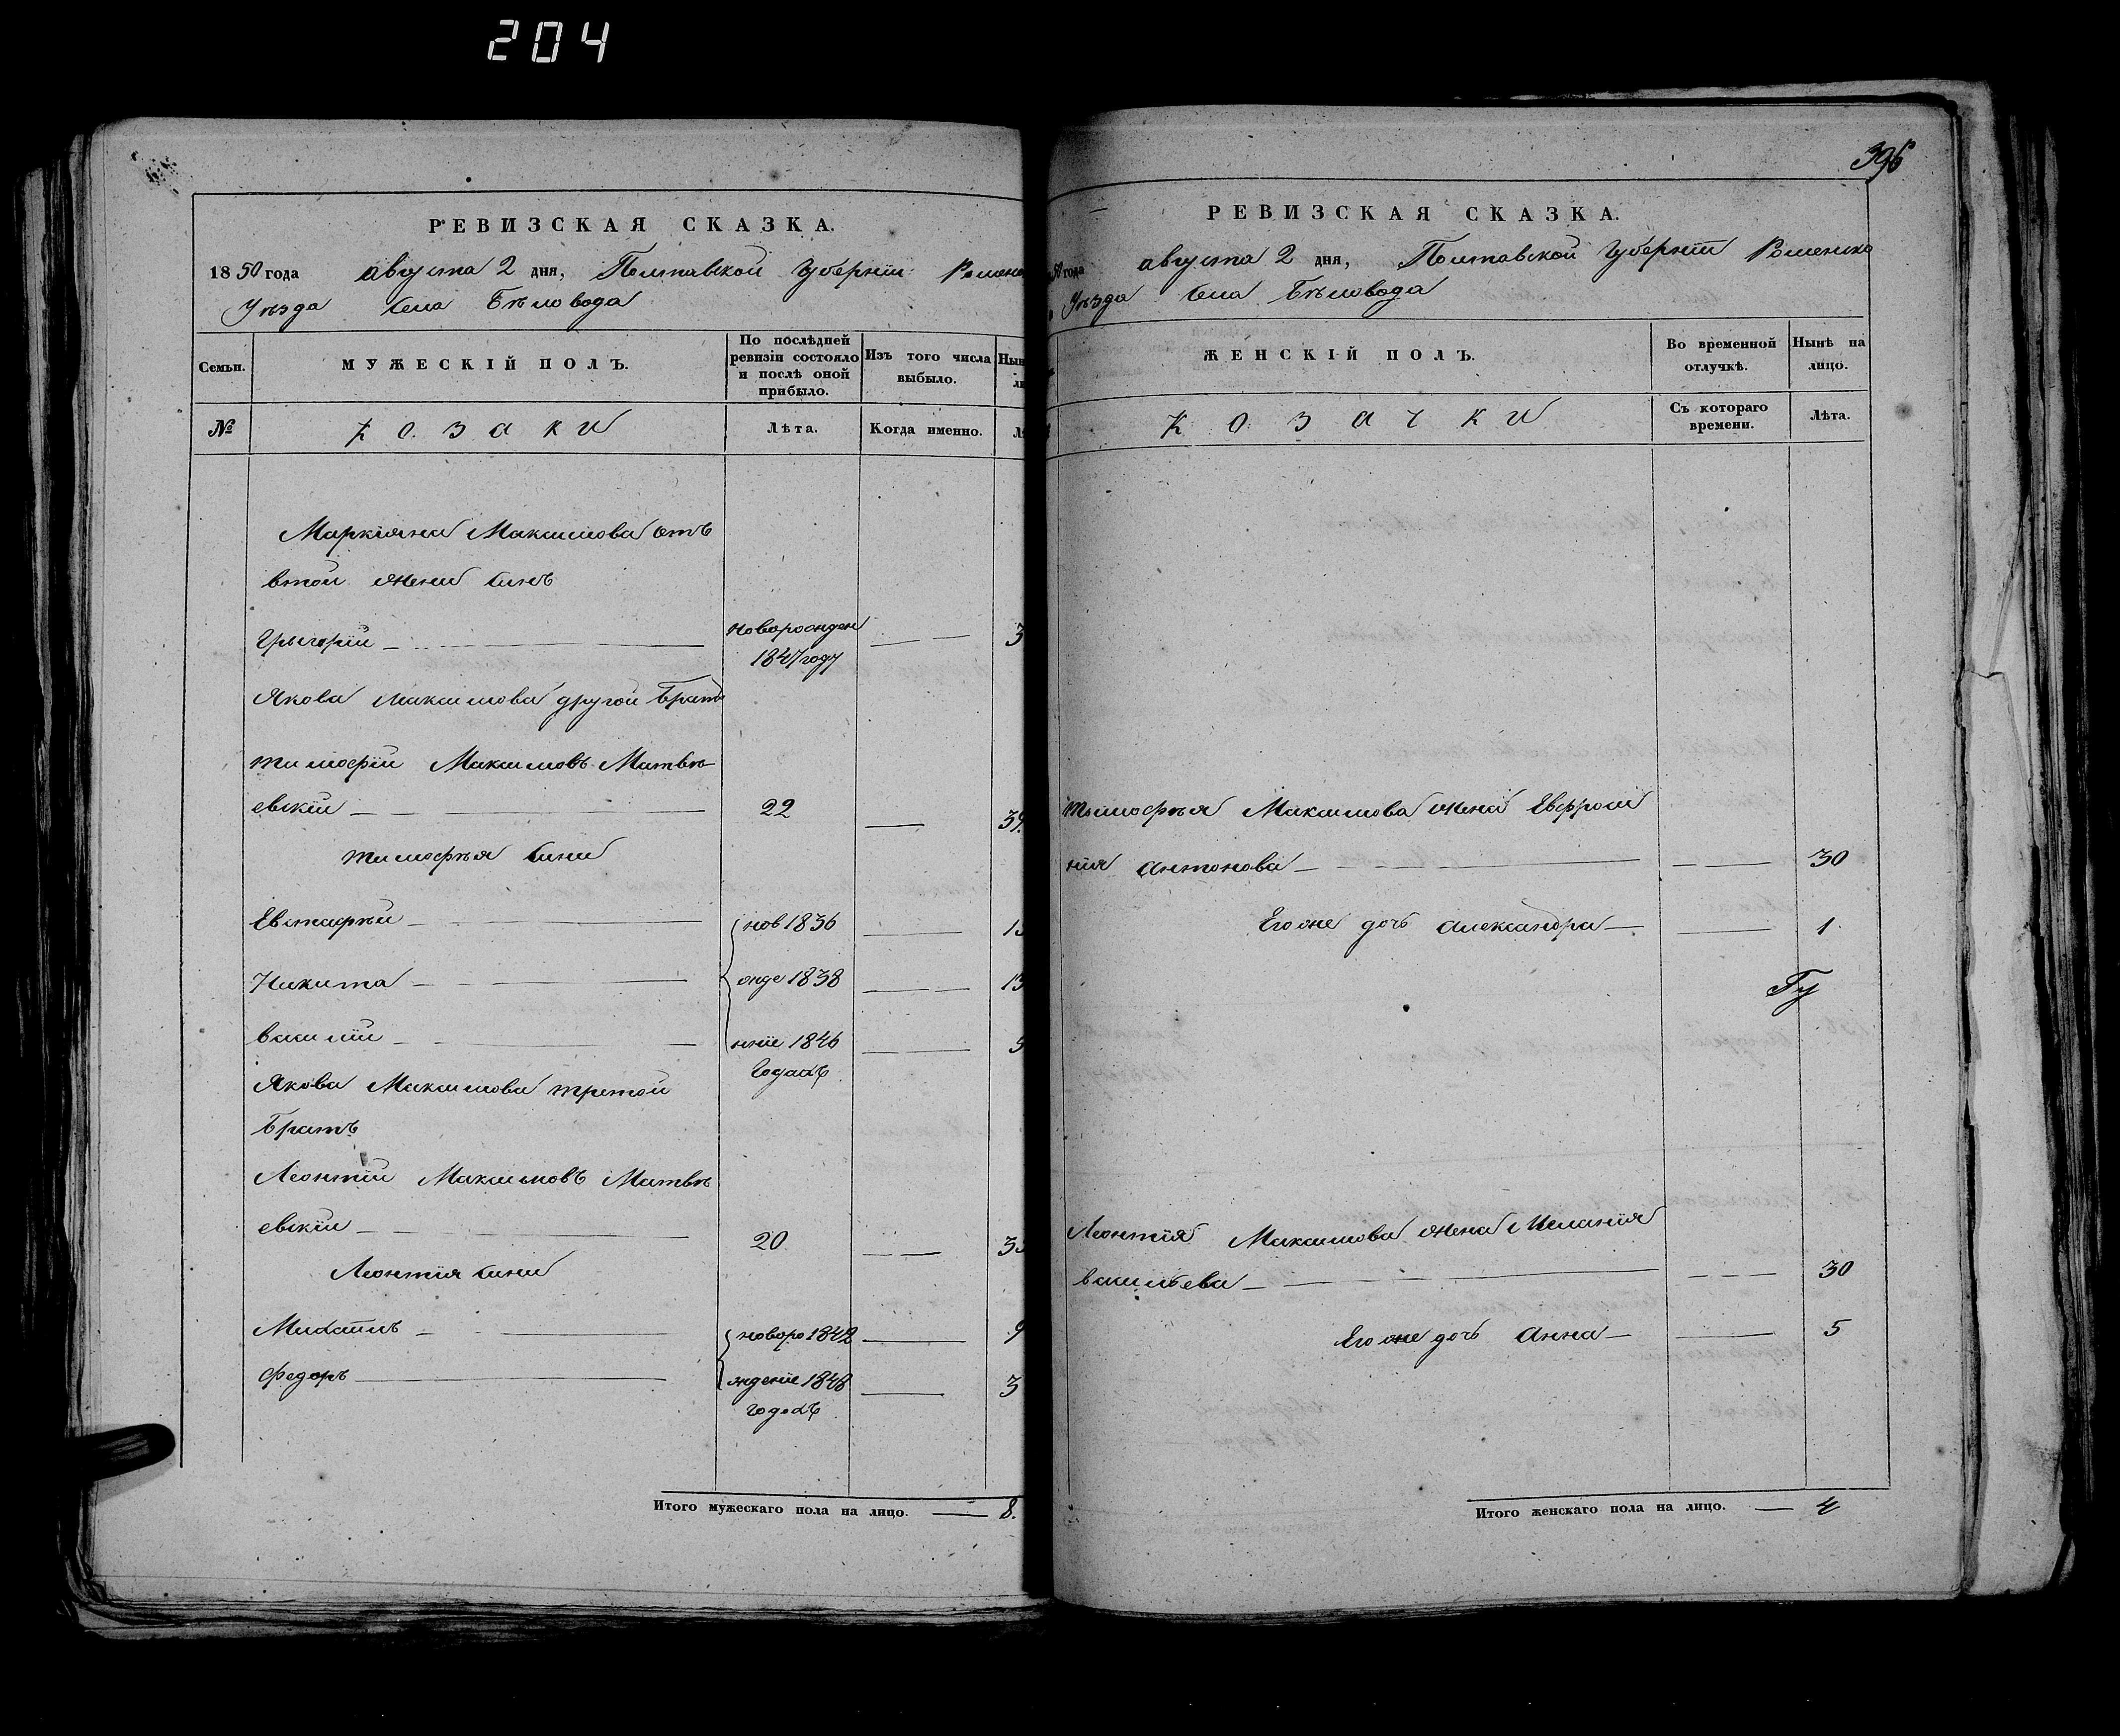 204
РЕВИЗСКАЯ СКАЗКА.
1850 года августа 2 дня, Полтавской Губернїи Роменс
Уѣзда села Бѣловода
Семьи.
МУЖЕСКІЙ ПОЛЪ.
По послѣдней ревизіи состояло и послѣ оной прибыло.
Изъ того числа выбыло.
№
Козаки
Лѣта.
Когда именно.
Маркіяна Максимова отъ
втой жени синъ
Григорїй
новорожден
1847 году
3
Якова Максимова другой братъ
Тимофїй Максимовъ Матвѣ
евскїй
22
39.
Тимофѣя сини
Евстафѣй
нов 1836
Никита
жде 1838
13
Василїй
ннїе 1846
Годахъ
Якова Максимова третой
братъ
Леонтїй Максимовъ Матвѣ
евскїй
20
Леонтїя сини
Михаилъ
новоро 1842
9
Федоръ
ждение 1848
3
годахъ
Итого мужескаго пола на лицо. 8.
396
РЕВИЗСКАЯ СКАЗКА.
50 года августа 2 дня, Полтавской Губернїи Роменско
Уѣзда села Бѣловода
ЖЕНСКІЙ ПОЛЪ.
Во временной отлучкѣ.
Нынѣ на лицо.
Козачки
Съ котораго времени.
Лѣта.
Тимофѣя Максимова жена Евфроси
нія Антонова
30
Егоже дочь Александра
1
Леонтїя Максимова жена Меланїя
Васильева
30
Егоже дочь Анна
5
Итого женскаго пола на лицо. 4